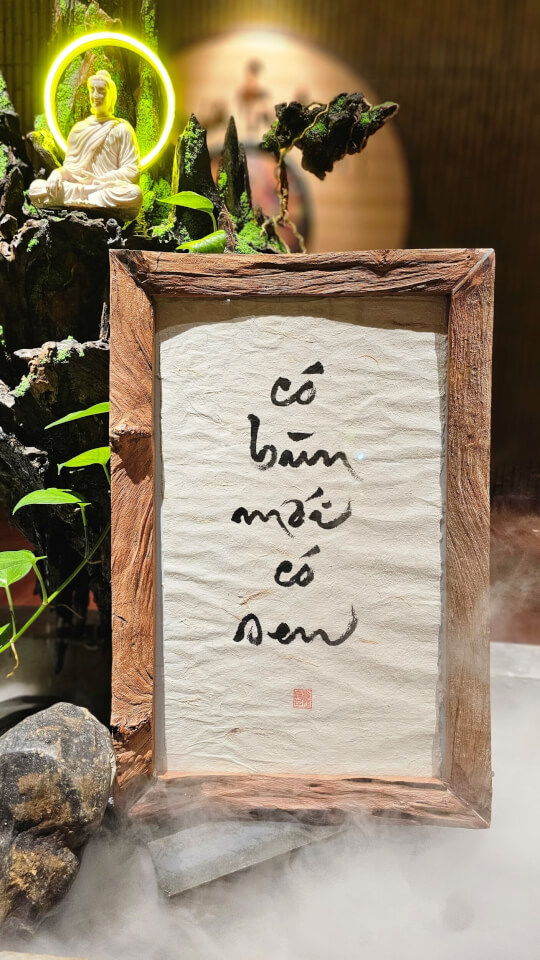 có
bùn
mới
có
sen